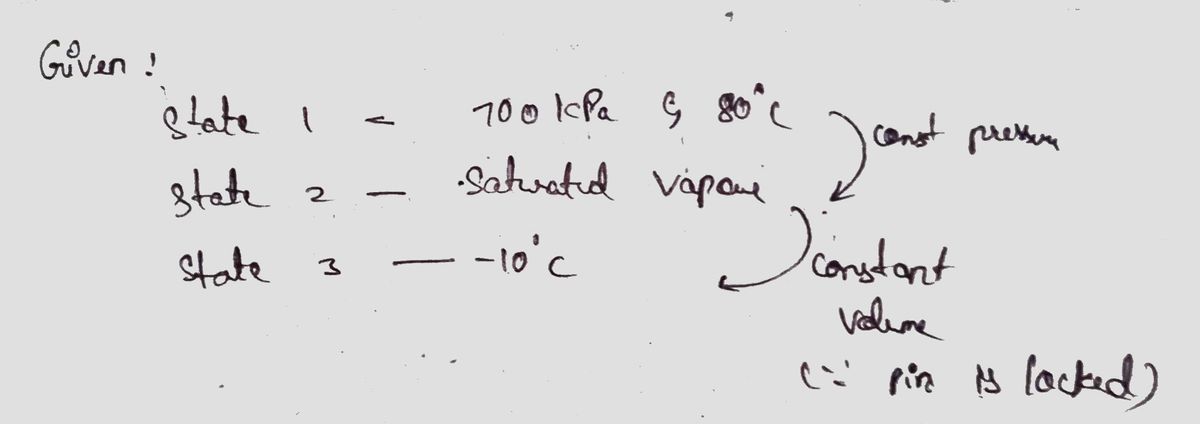 Given !
State 1 - 700 kPa & 80°C
const pressure
State 2 - Saturated Vapour
State 3 - -10°C
Constant
Volume
(∵ pin is locked)